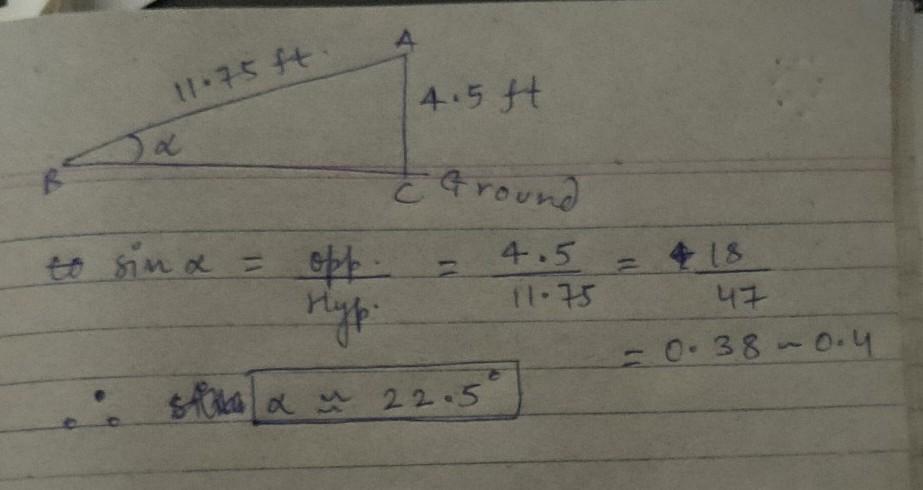 A
11.75 ft.
4.5 ft
α
B
C Ground
to sin α = opp. / Hyp. = 4.5 / 11.75 = 18 / 47
= 0.38 ~ 0.4
∴ α ≈ 22.5°